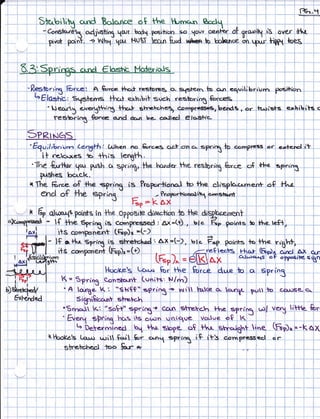 Pg. 4
Stability and Balance of the Human Body
- Constantly adjusting your body position so your center of gravity is over the
pivot point. → Why you MUST lean fwd to balance on your tippy toes
8.3: Springs and Elastic Materials
· Restoring Force: A force that restores a system to an equilibrium position
↳ Elastic: Systems that exhibit such restoring forces
· Nearly everything that stretches, compresses, bends, or twists exhibits a
restoring force and can be called elastic.
SPRINGS
· Equilibrium Length: When no forces act on a spring to compress or extend it
it relaxes to this length.
· The further you push a spring, the harder the restoring force of the spring
pushes back.
* The force of the spring is Proportional to the displacement of the
end of the spring
Proportionality constant
Fsp = K ΔX
* Fsp always points in the opposite direction to the displacement
a) Compressed
- If the Spring is compressed: ΔX = (+), b/c Fsp points to the left,
its component (Fsp)x = (-)
- If the Spring is stretched: ΔX = (-), b/c Fsp points to the right,
its component (Fsp)x = (+)
reflects that (Fsp)x and ΔX are
always of opposite sign
(Fsp)x = -K ΔX
Equilibrium
length
Hooke's Law for the force due to a spring
b) Stretched/
Extended
K = Spring Constant (units: N/m)
· A large K: "Stiff" spring → will take a large pull to cause a
Significant stretch
· Small K: "Soft" spring → can stretch the spring w/ very little for
· Every spring has its own unique value of K
↳ Determined by the slope of the straight line (Fsp)x = -K ΔX
* Hooke's Law will fail for any spring if it's compressed or
stretched too far *